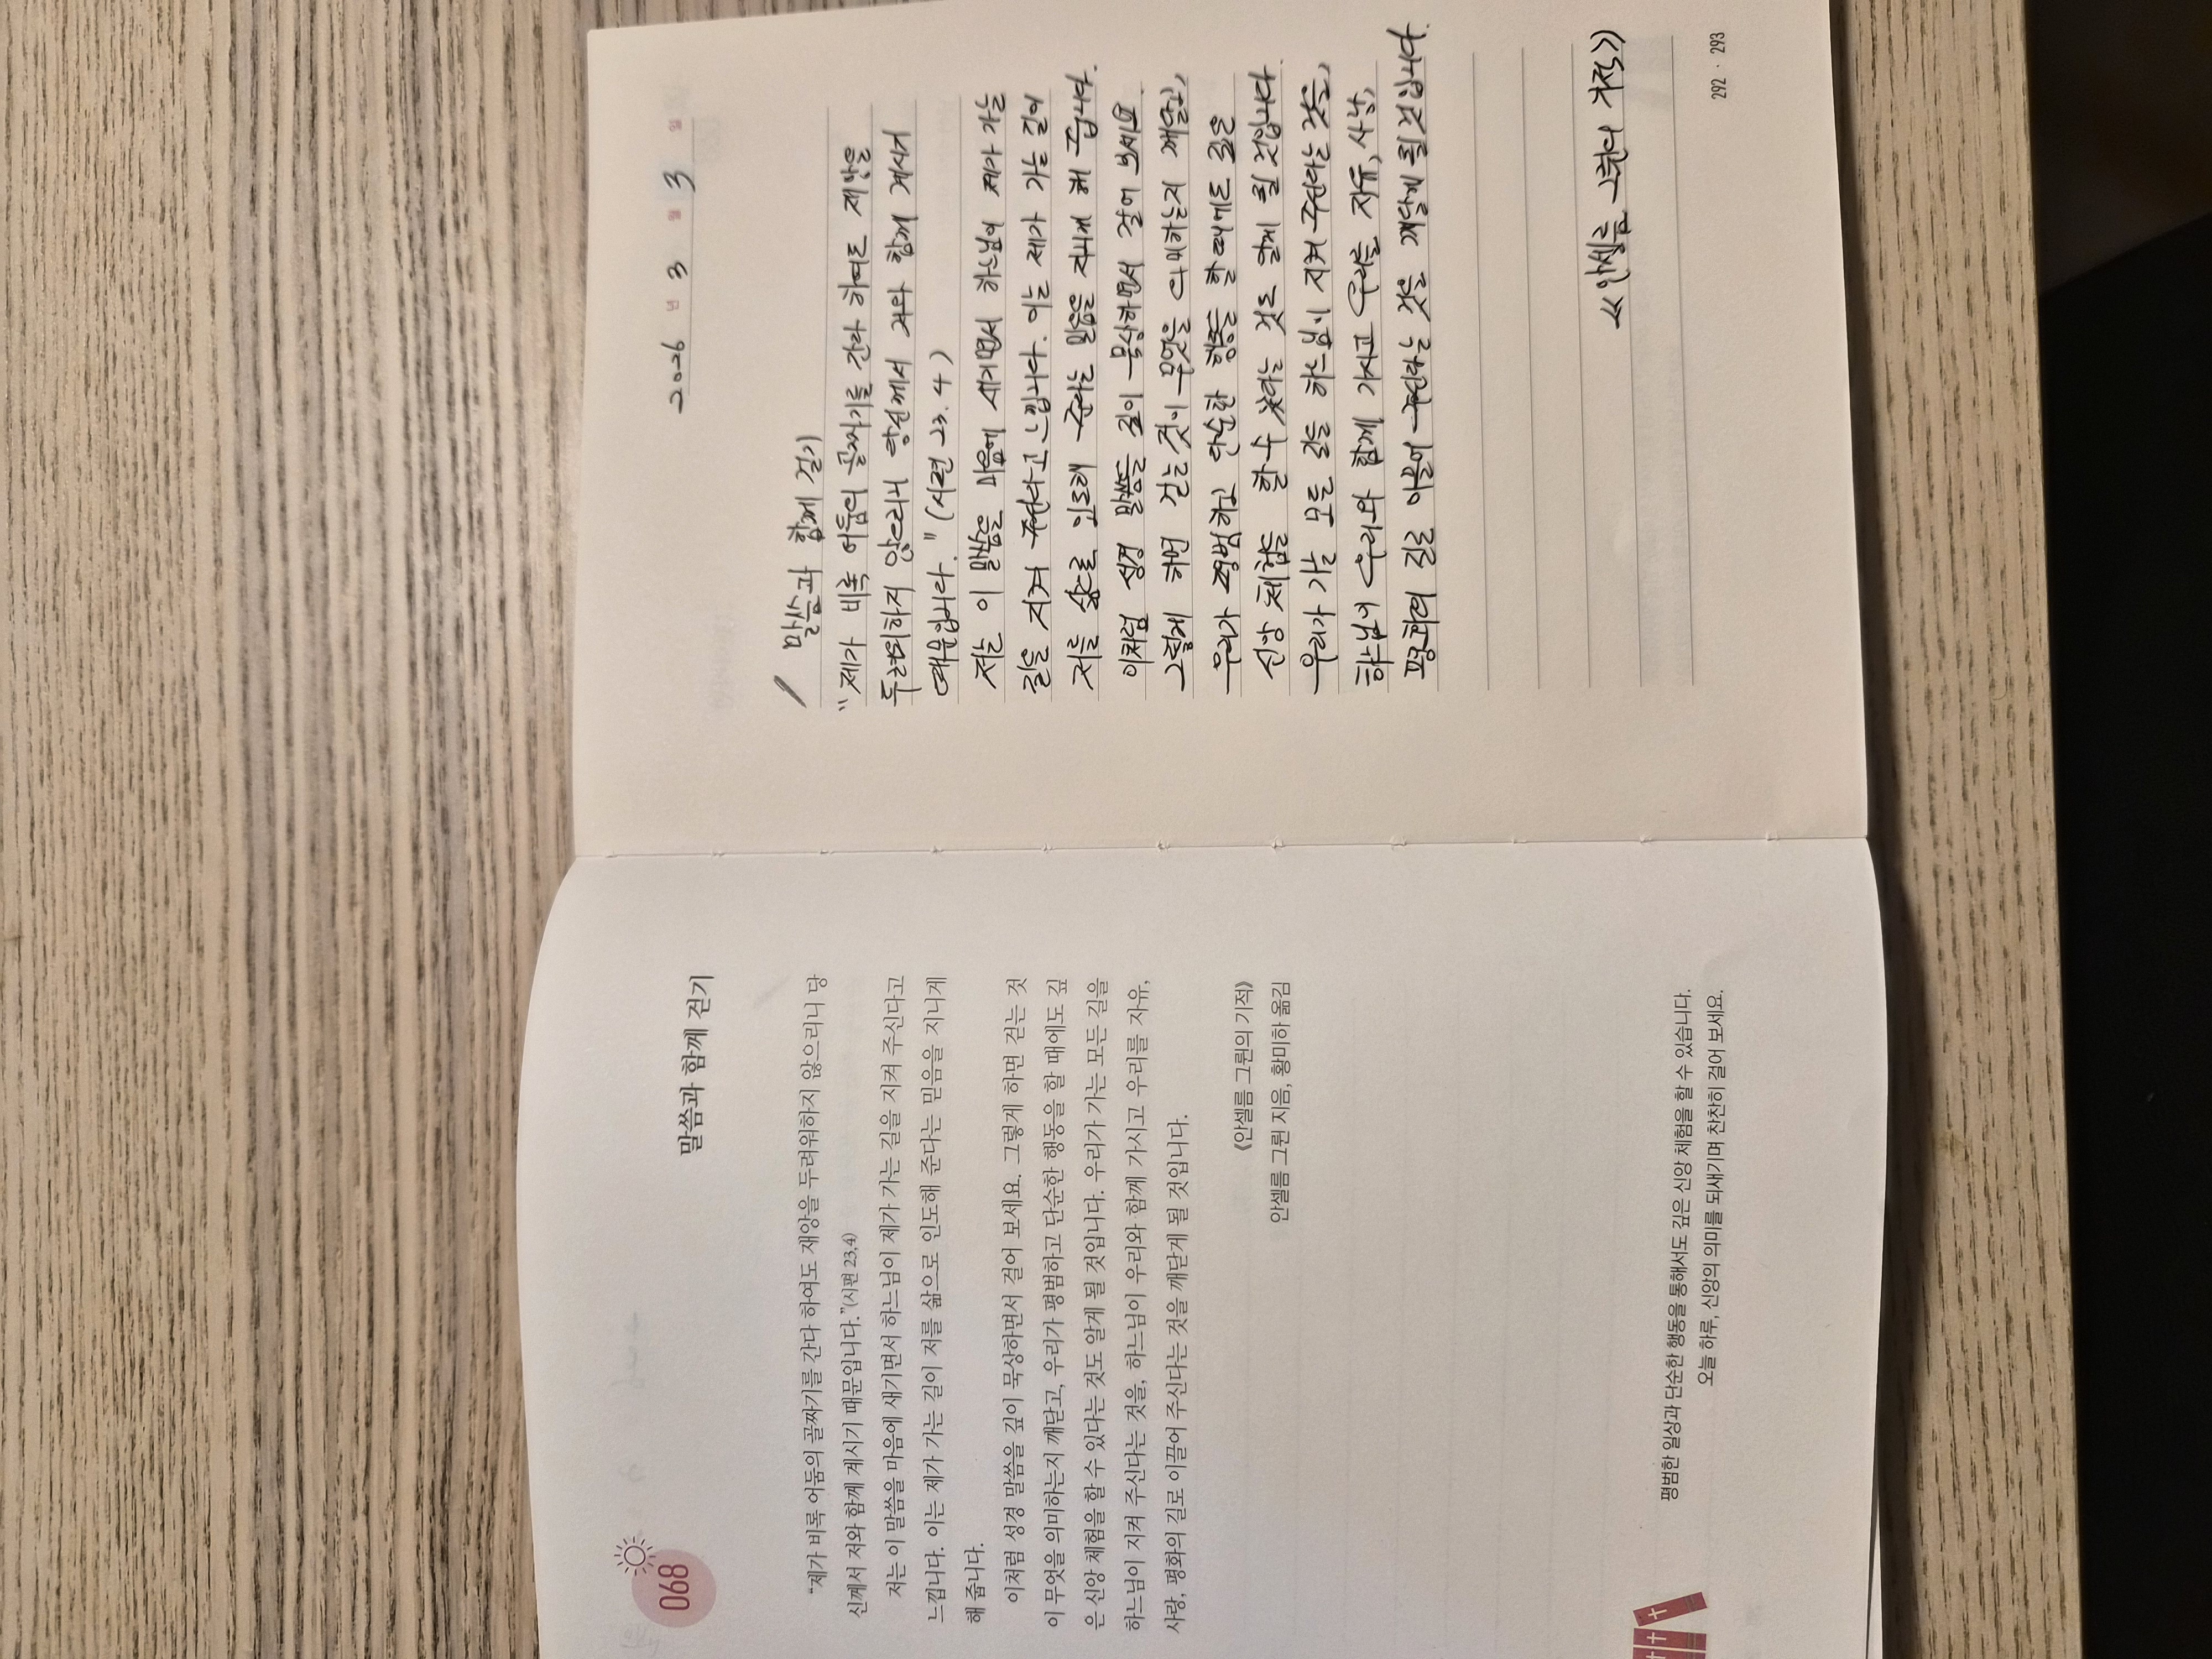 068
말씀과 함께 걷기
“제가 비록 어둠의 골짜기를 간다 하여도 재앙을 두려워하지 않으리니 당
신께서 저와 함께 계시기 때문입니다.”(시편 23,4)
저는 이 말씀을 마음에 새기면서 하느님이 제가 가는 길을 지켜 주신다고
느낍니다. 이는 제가 가는 길이 저를 삶으로 인도해 준다는 믿음을 지니게
해 줍니다.
이처럼 성경 말씀을 깊이 묵상하면서 걸어 보세요. 그렇게 하면 걷는 것
이 무엇을 의미하는지 깨닫고, 우리가 평범하고 단순한 행동을 할 때에도 깊
은 신앙 체험을 할 수 있다는 것도 알게 될 것입니다. 우리가 가는 모든 길을
하느님이 지켜 주신다는 것을, 하느님이 우리와 함께 가시고 우리를 자유,
사랑, 평화의 길로 이끌어 주신다는 것을 깨닫게 될 것입니다.
《안셀름 그륀의 기적》
안셀름 그륀 지음, 황미하 옮김
평범한 일상과 단순한 행동을 통해서도 깊은 신앙 체험을 할 수 있습니다.
오늘 하루, 신앙의 의미를 되새기며 찬찬히 걸어 보세요.
2026 년 3 월 3 일
말씀과 함께 걷기
“제가 비록 어둠의 골짜기를 간다 하여도 재앙을
두려워하지 않으리니 당신께서 저와 함께 계시기
때문입니다.” (시편 23. 4)
저는 이 말씀을 마음에 새기면서 하느님이 제가 가는
길을 지켜 주신다고 느낍니다. 이는 제가 가는 길이
저를 삶으로 인도해 준다는 믿음을 지니게 해 줍니다.
이처럼 성경 말씀을 깊이 묵상하면서 걸어 보세요.
그렇게 하면 걷는 것이 무엇을 의미하는지 깨닫고,
우리가 평범하고 단순한 행동을 할 때에도 깊은
신앙 체험을 할 수 있다는 것도 알게 될 것입니다.
우리가 가는 모든 길을 하느님이 지켜 주신다는 것을,
하느님이 우리와 함께 가시고 우리를 자유, 사랑,
평화의 길로 이끌어 주신다는 것을 깨닫게 될 것입니다.
《안셀름 그륀의 기적》
292 · 293